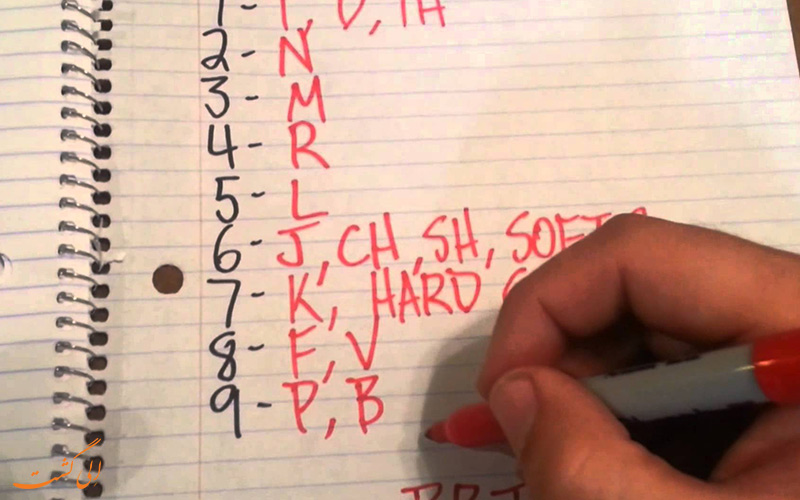 1- T, D, TH
2- N
3- M
4- R
5- L
6- J, CH, SH, SOFT
7- K, HARD
8- F, V
9- P, B
الی گشت